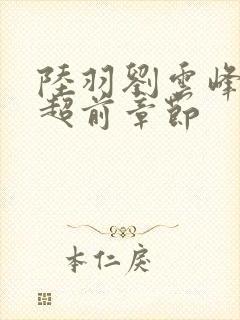 陸羽劉雲峰
超前章節
本仁戾